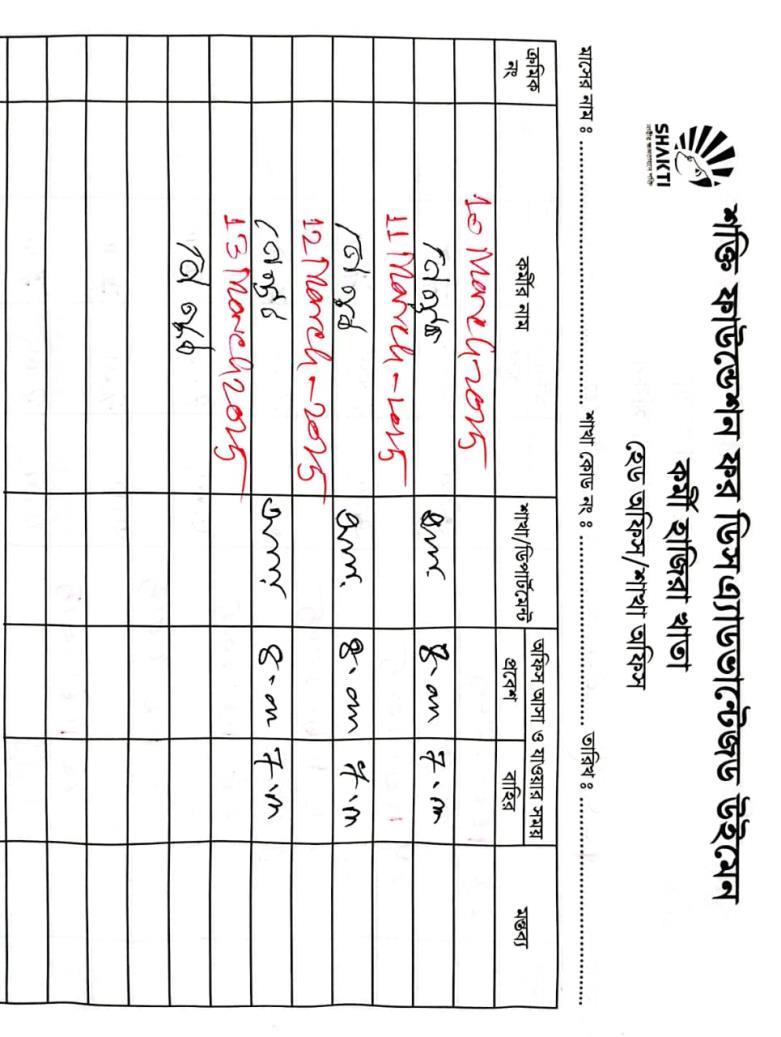 SHAKTI
শক্তি ফাউন্ডেশন ফর ডিসএ্যাডভান্টেজড উইমেন
কর্মী হাজিরা খাতা
হেড অফিস/শাখা অফিস
মাসের নাম ঃ .......... শাখা কোড নং ঃ .......... তারিখ ঃ ..........
ক্রমিক নং কর্মীর নাম শাখা/ডিপার্টমেন্ট অফিস আসা ও যাওয়ার সময় মন্তব্য
প্রবেশ বাহির
10 March 2025
8-am 7-m
11 March-2025
8-am 7-m
12 March-2025
8-am 7-m
13 March 2025